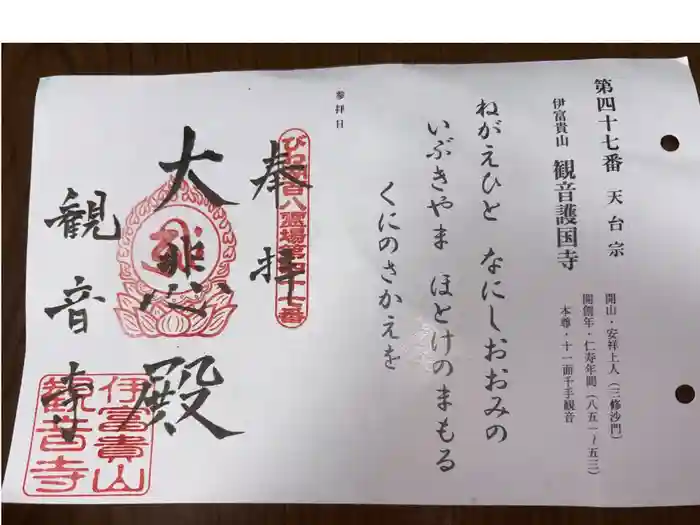 第四十七番 天台宗
伊富貴山 観音護国寺
開山・安祥上人(三修沙門)
開創年・仁寿年間(八五一~五三)
本尊・十一面千手観音
ねがえひと なにしおおみの
いぶきやま ほとけのまもる
くにのさかえを
参拝日
奉拝
びわ湖百八霊場第四十七番
大悲殿
観音寺
伊富貴山
観音寺